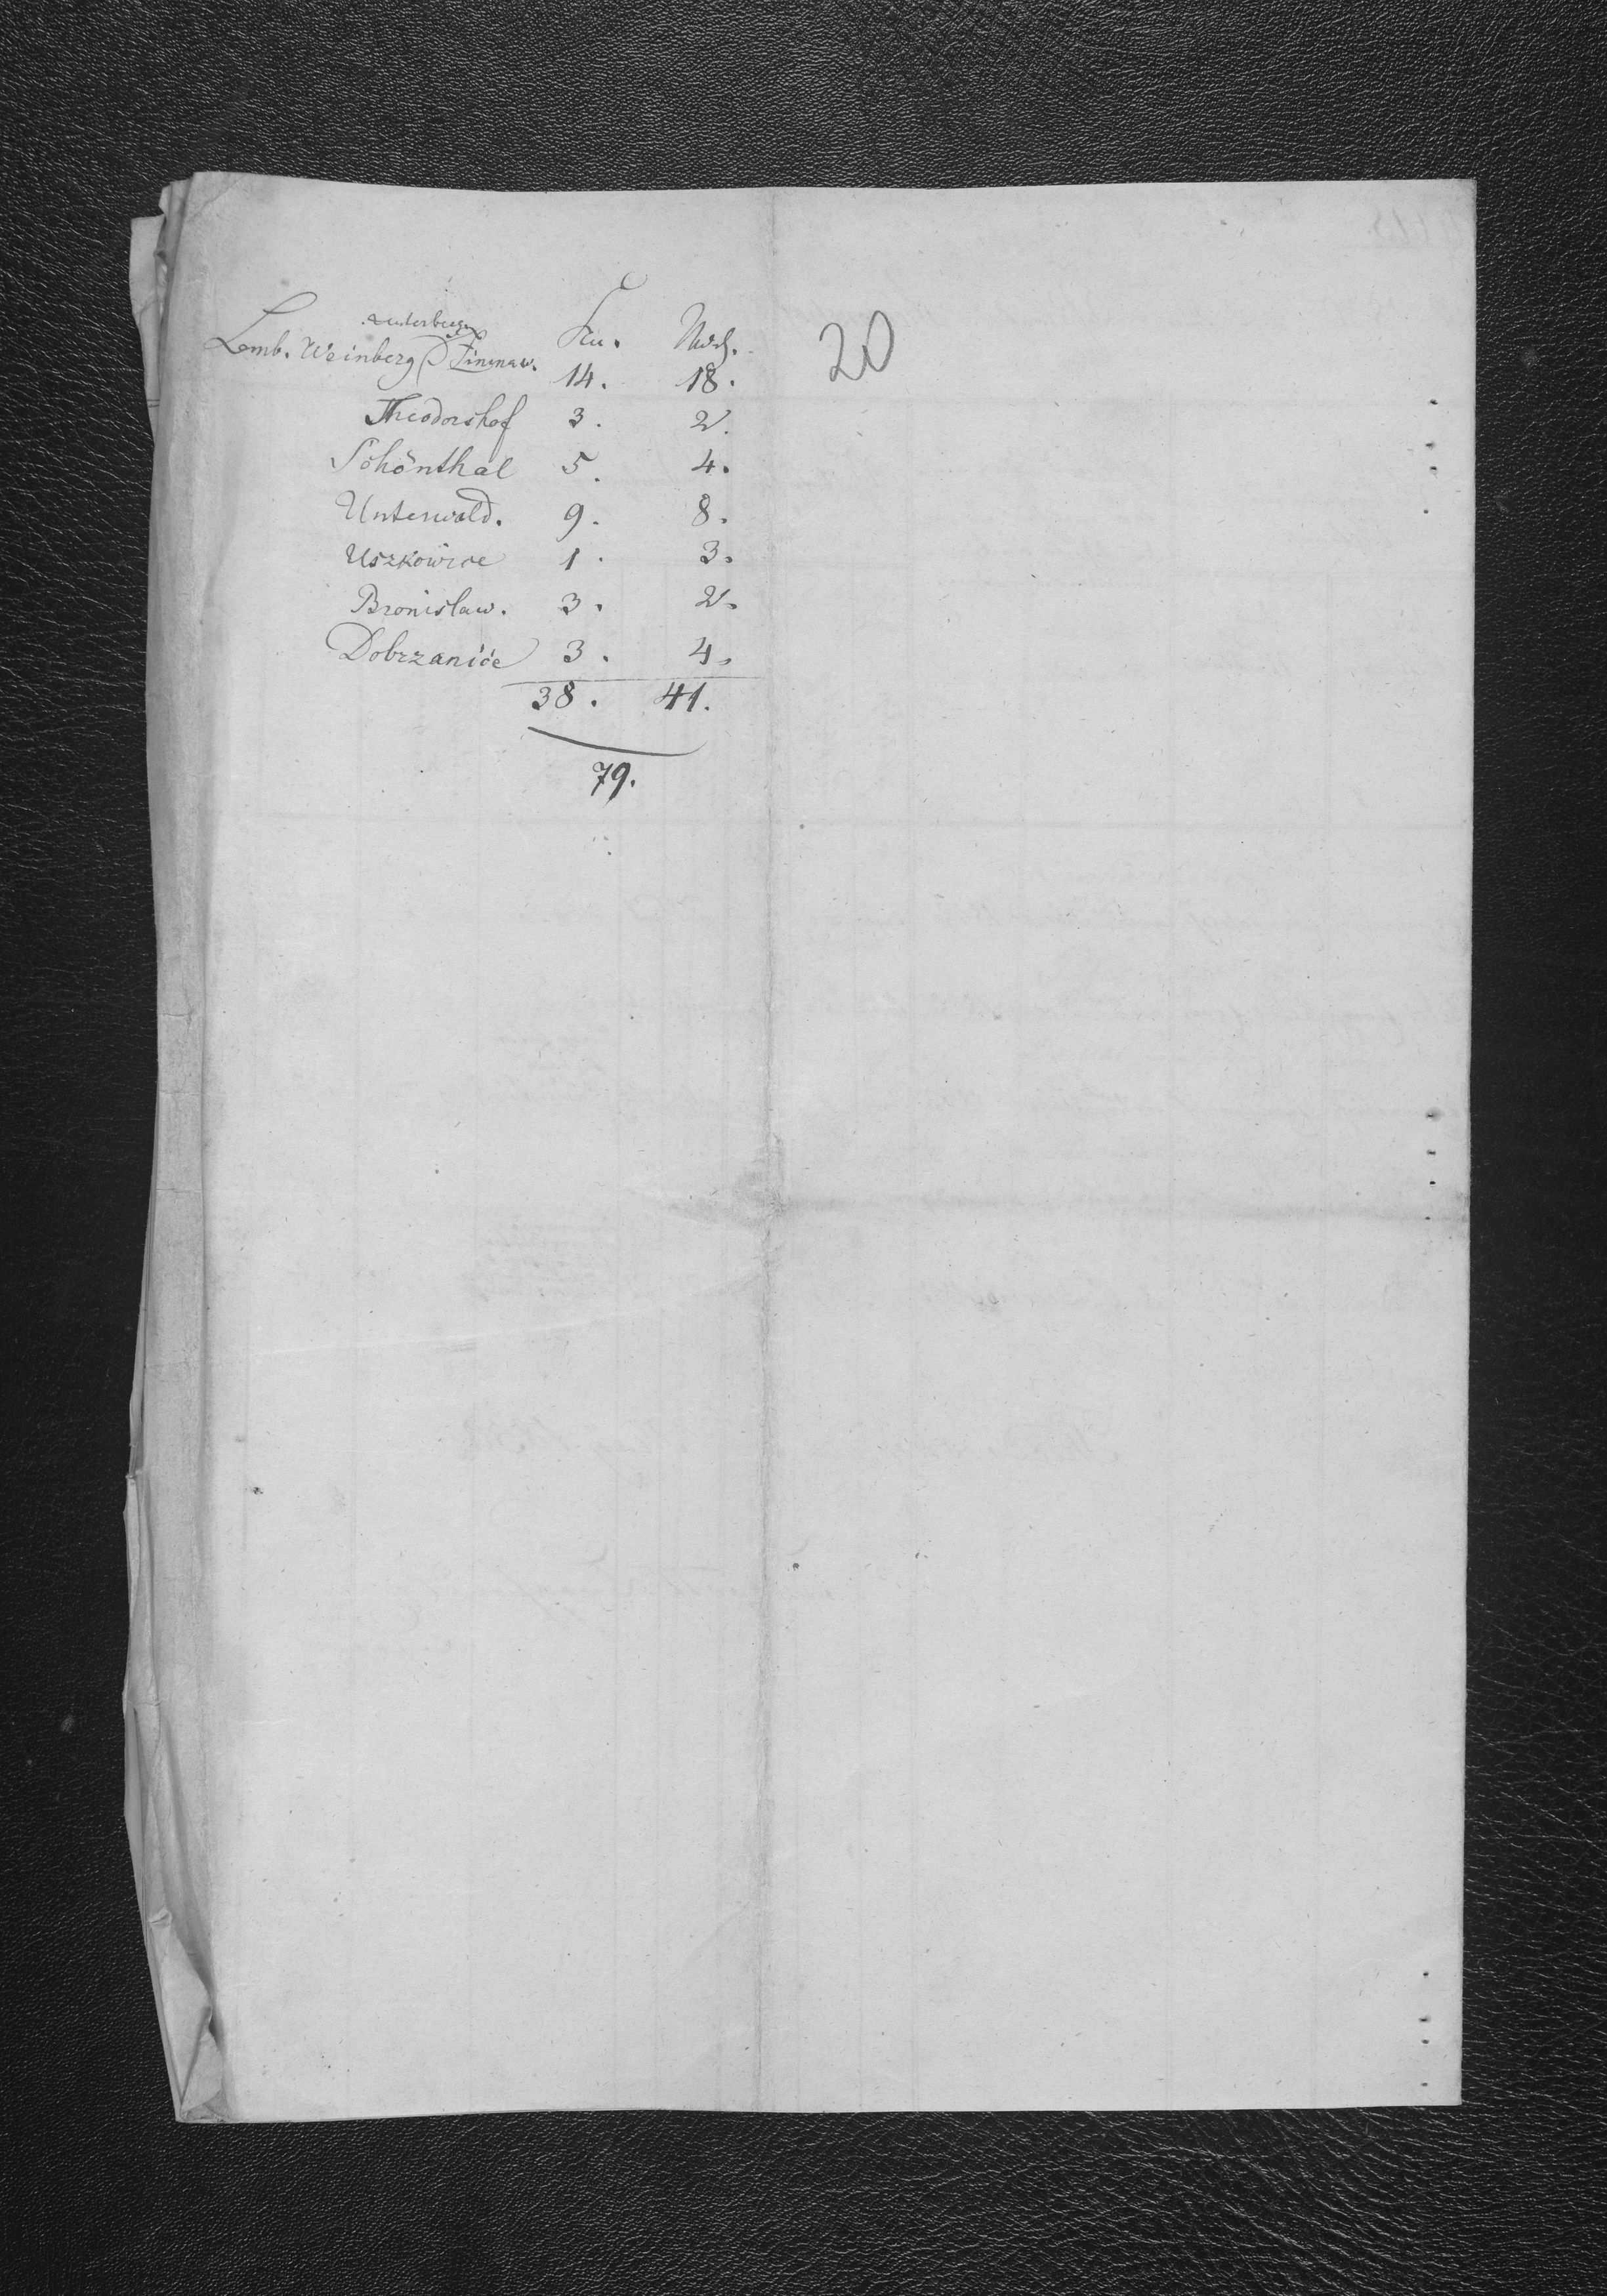 Kn. Mdch.
Lemb. Weinberg Unterbergen
14. 18.
20
Theodorshof 3. 2.
Schönthal 5. 4.
Unterwald. 9. 8.
Uszkowice 1. 3.
Bronislaw. 3. 2.
Dobrzanice 3. 4.
38. 41.
79.